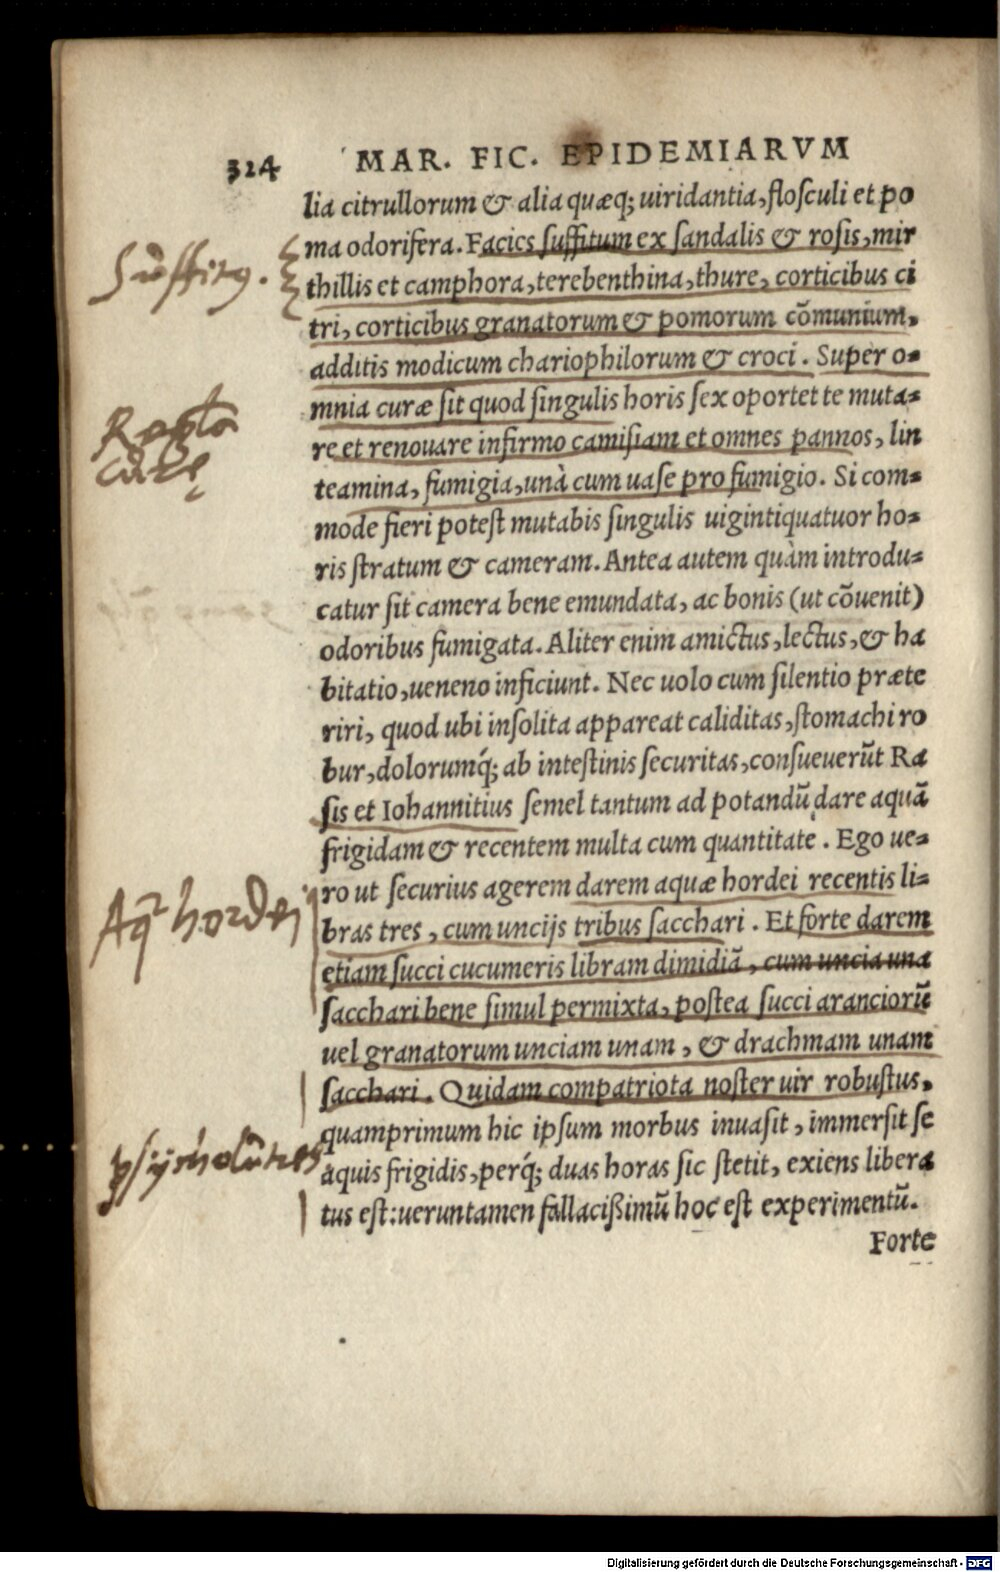 324 MAR. FIC. EPIDEMIARVM
lia citrullorum & alia quæq; uiridantia, flosculi et po
ma odorifera. Facics suffitum ex sandalis & rosis, mir
Suffitus.
thillis et camphora, terebenthina, thure, corticibus ci
tri, corticibus granatorum & pomorum cõmunium,
additis modicum chariophilorum & croci. Super o=
mnia curæ sit quod singulis horis sex oportet te muta=
re et renouare infirmo camisiam et omnes pannos, lin
teamina, fumigia, unà cum uase pro fumigio. Si com=
mode fieri potest mutabis singulis uigintiquatuor ho=
ris stratum & cameram. Antea autem quàm introdu=
catur sit camera bene emundata, ac bonis (ut cõuenit)
odoribus fumigata. Aliter enim amictus, lectus, & ha
bitatio, ueneno inficiunt. Nec uolo cum silentio præte
riri, quod ubi insolita appareat caliditas, stomachi ro
bur, dolorumq́; ab intestinis securitas, consueuerũt Ra
sis et Iohannitius semel tantum ad potandũ dare aquã
frigidam & recentem multa cum quantitate. Ego ue=
ro ut securius agerem darem aquæ hordei recentis li=
Aq hordei
bras tres, cum uncijs tribus sacchari. Et forte darem
etiam succi cucumeris libram dimidiã, cum uncia una
sacchari bene simul permixta, postea succi aranciorũ
uel granatorum unciam unam, & drachmam unam
sacchari. Quidam compatriota noster uir robustus,
quamprimum hic ipsum morbus inuasit, immersit se
aquis frigidis, perq́; duas horas sic stetit, exiens libera
tus est: ueruntamen fallacißimũ hoc est experimentũ.
Forte
Digitalisierung gefördert durch die Deutsche Forschungsgemeinschaft - DFG